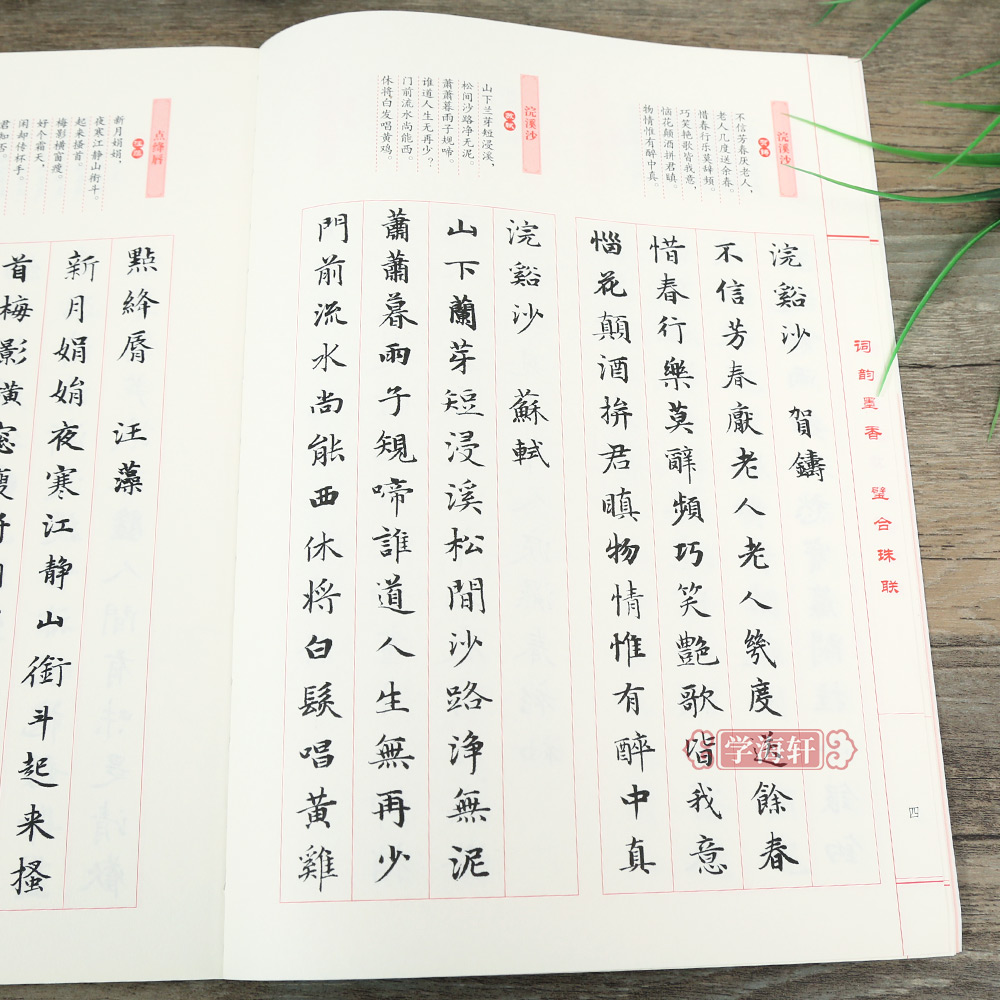 词韵墨香 璧合珠联
四
浣溪沙
贺铸
不信芳春厌老人,
老人几度送余春。
惜春行乐莫辞频
巧笑艳歌皆我意,
恼花颠酒拼君瞋。
物情惟有醉中真。
浣谿沙 賀鑄
不信芳春厭老人老人幾度送餘春
惜春行樂莫辭頻巧笑艷歌皆我意
惱花顛酒拚君瞋物情惟有醉中真
浣溪沙
苏轼
山下兰芽短浸溪,
松间沙路净无泥。
萧萧暮雨子规啼。
谁道人生无再少?
门前流水尚能西,
休将白发唱黄鸡。
浣谿沙 蘇軾
山下蘭芽短浸溪松間沙路淨無泥
蕭蕭暮雨子規啼誰道人生無再少
門前流水尚能西休將白髮唱黃雞
点绛唇
汪藻
新月娟娟,
夜寒江静山衔斗。
起来搔首。
梅影横窗瘦。
好个霜天,
闲却传杯手。
君知否。
點絳脣 汪藻
新月娟娟夜寒江静山銜斗起来搔
首梅影橫窓瘦好
学海轩